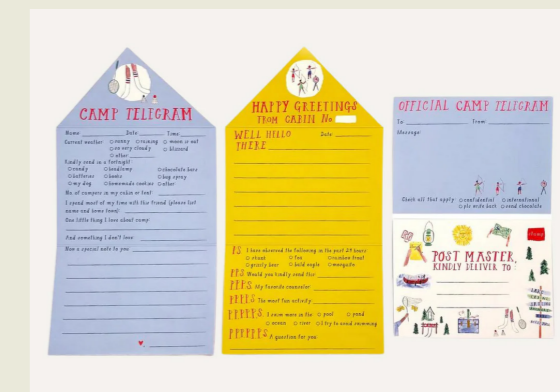 CAMP TELEGRAM
Name: Date: Time:
Current weather: sunny raining moon is out
so very cloudy blizzard
other
Kindly send in a fortnight:
candy headlamp chocolate bars
batteries books bug spray
my dog homemade cookies other
No. of campers in my cabin or tent:
I spend most of my time with this friend (please list
name and home town):
One little thing I love about camp:
And something I don't love:
Now a special note to you:
HAPPY GREETINGS
FROM CABIN No
WELL HELLO Date:
THERE
PS I have observed the following in the past 24 hours
stoat fox rainbow trout
grizzly bear bald eagle mosquito
PPS Would you kindly send this:
PPPS My favorite counselor:
PPPPS The most fun activity
PPPPPS I swam more in the pool pond
ocean river I try to avoid swimming
PPPPPPS A question for you
OFFICIAL CAMP TELEGRAM
To: From:
Message:
Check all that apply confidential international
pls write back send chocolate
stamp
POST MASTER,
KINDLY DELIVER TO: